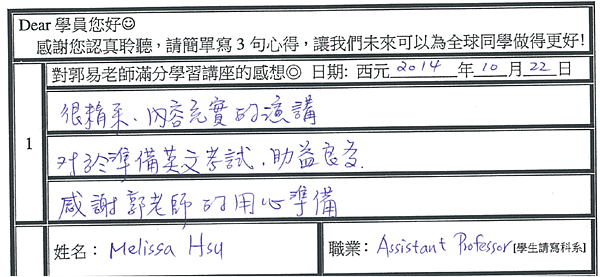 Dear 學員您好☺
感謝您認真聆聽，請簡單寫 3 句心得，讓我們未來可以為全球同學做得更好!
對郭易老師滿分學習講座的感想◎ 日期: 西元 2014 年 10 月 22 日
1
很精采、內容充實的演講
对於準備英文考試，助益良多.
感謝郭老師的用心準備
姓名： Melissa Hsu 職業： Assistant Professor [學生請寫科系]